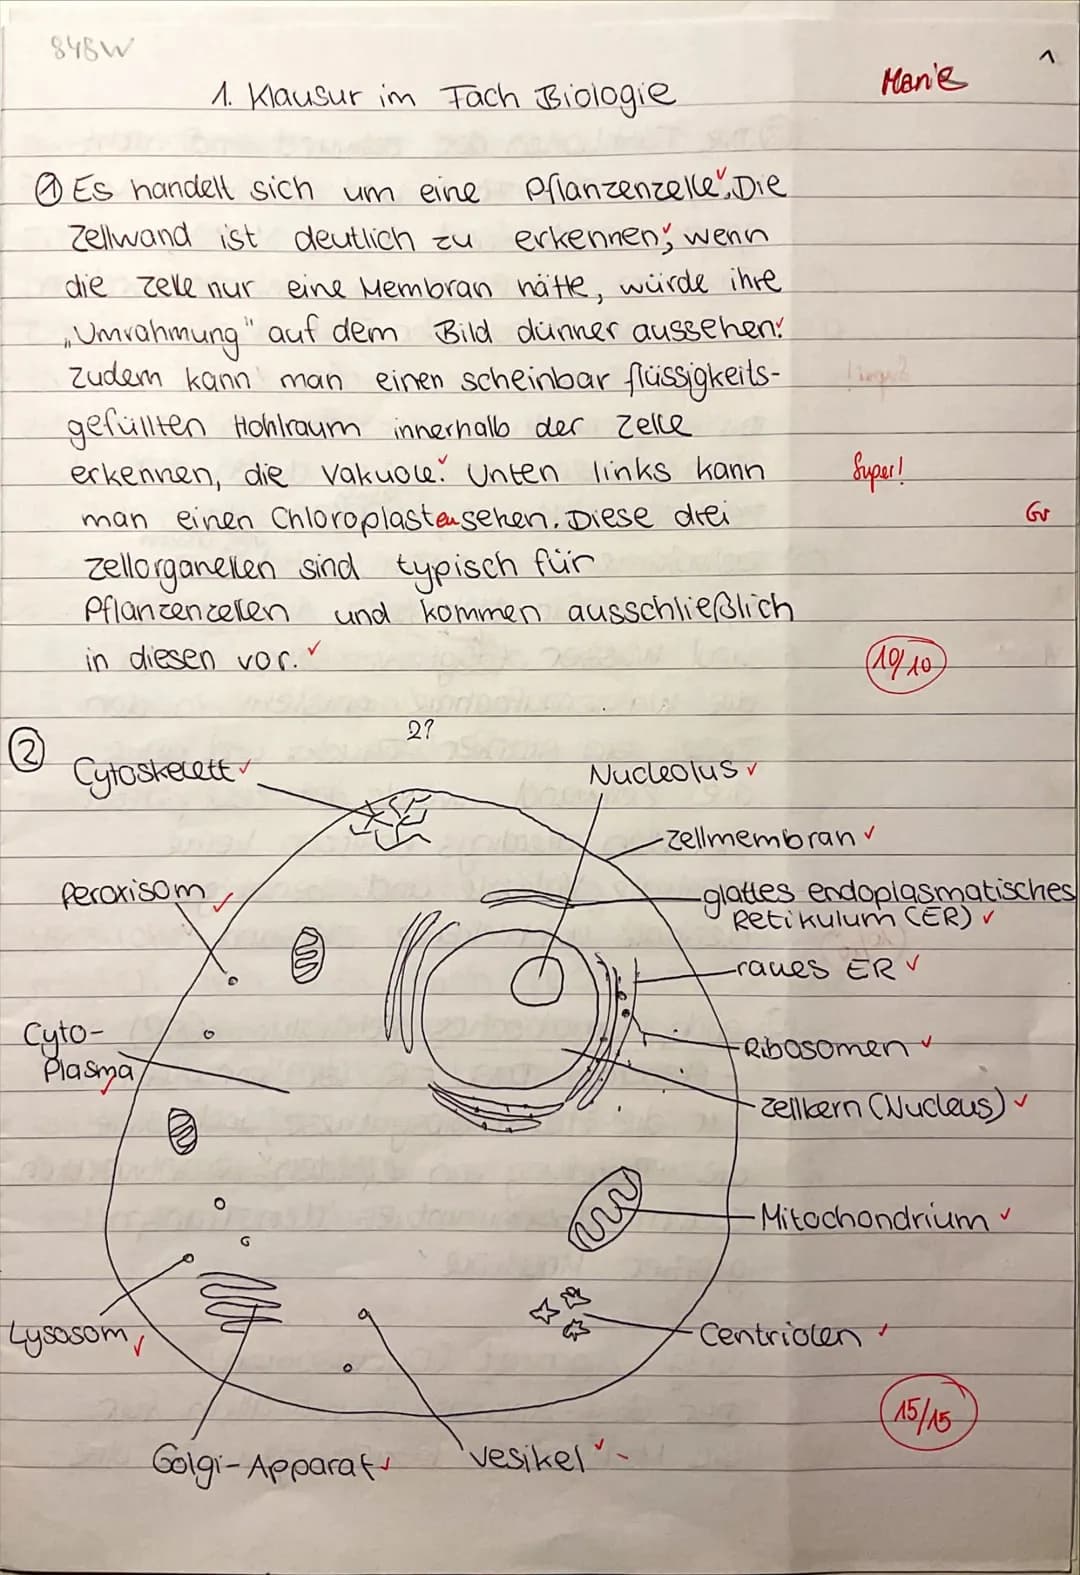 848W
1
1. Klausur im Fach Biologie
Marie
① Es handelt sich um eine Pflanzenzelle. Die
Zellwand ist deutlich zu erkennen; wenn
die Zelle nur eine Membran hätte, würde ihre
„Umrahmung" auf dem Bild dünner aussehen.
Zudem kann man einen scheinbar flüssigkeits-
gefüllten Hohlraum innerhalb der Zelle
erkennen, die Vakuole. Unten links kann
Super!
man einen Chloroplasten sehen. Diese drei
Gr
Zellorganellen sind typisch für
Pflanzenzellen und kommen ausschließlich
in diesen vor.
10/10
2?
②
Cytoskelett
Nucleolus
Zellmembran
Peroxisom
glattes endoplasmatisches
Retikulum (ER)
raues ER
Cyto-
Plasma
Ribosomen
Zellkern (Nucleus)
Mitochondrium
Lysosom
Centriolen
15/15
Golgi-Apparat
Vesikel